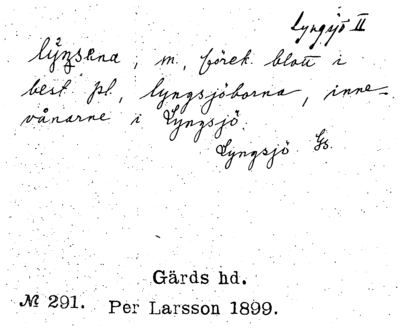 Lyngsjö II
lyngsena, m, förek. blott i
best pl., lyngsjöborna, inne-
vånarne i Lyngsjö.
Lyngsjö Gs.
Gärds hd.
№ 291. Per Larsson 1899.